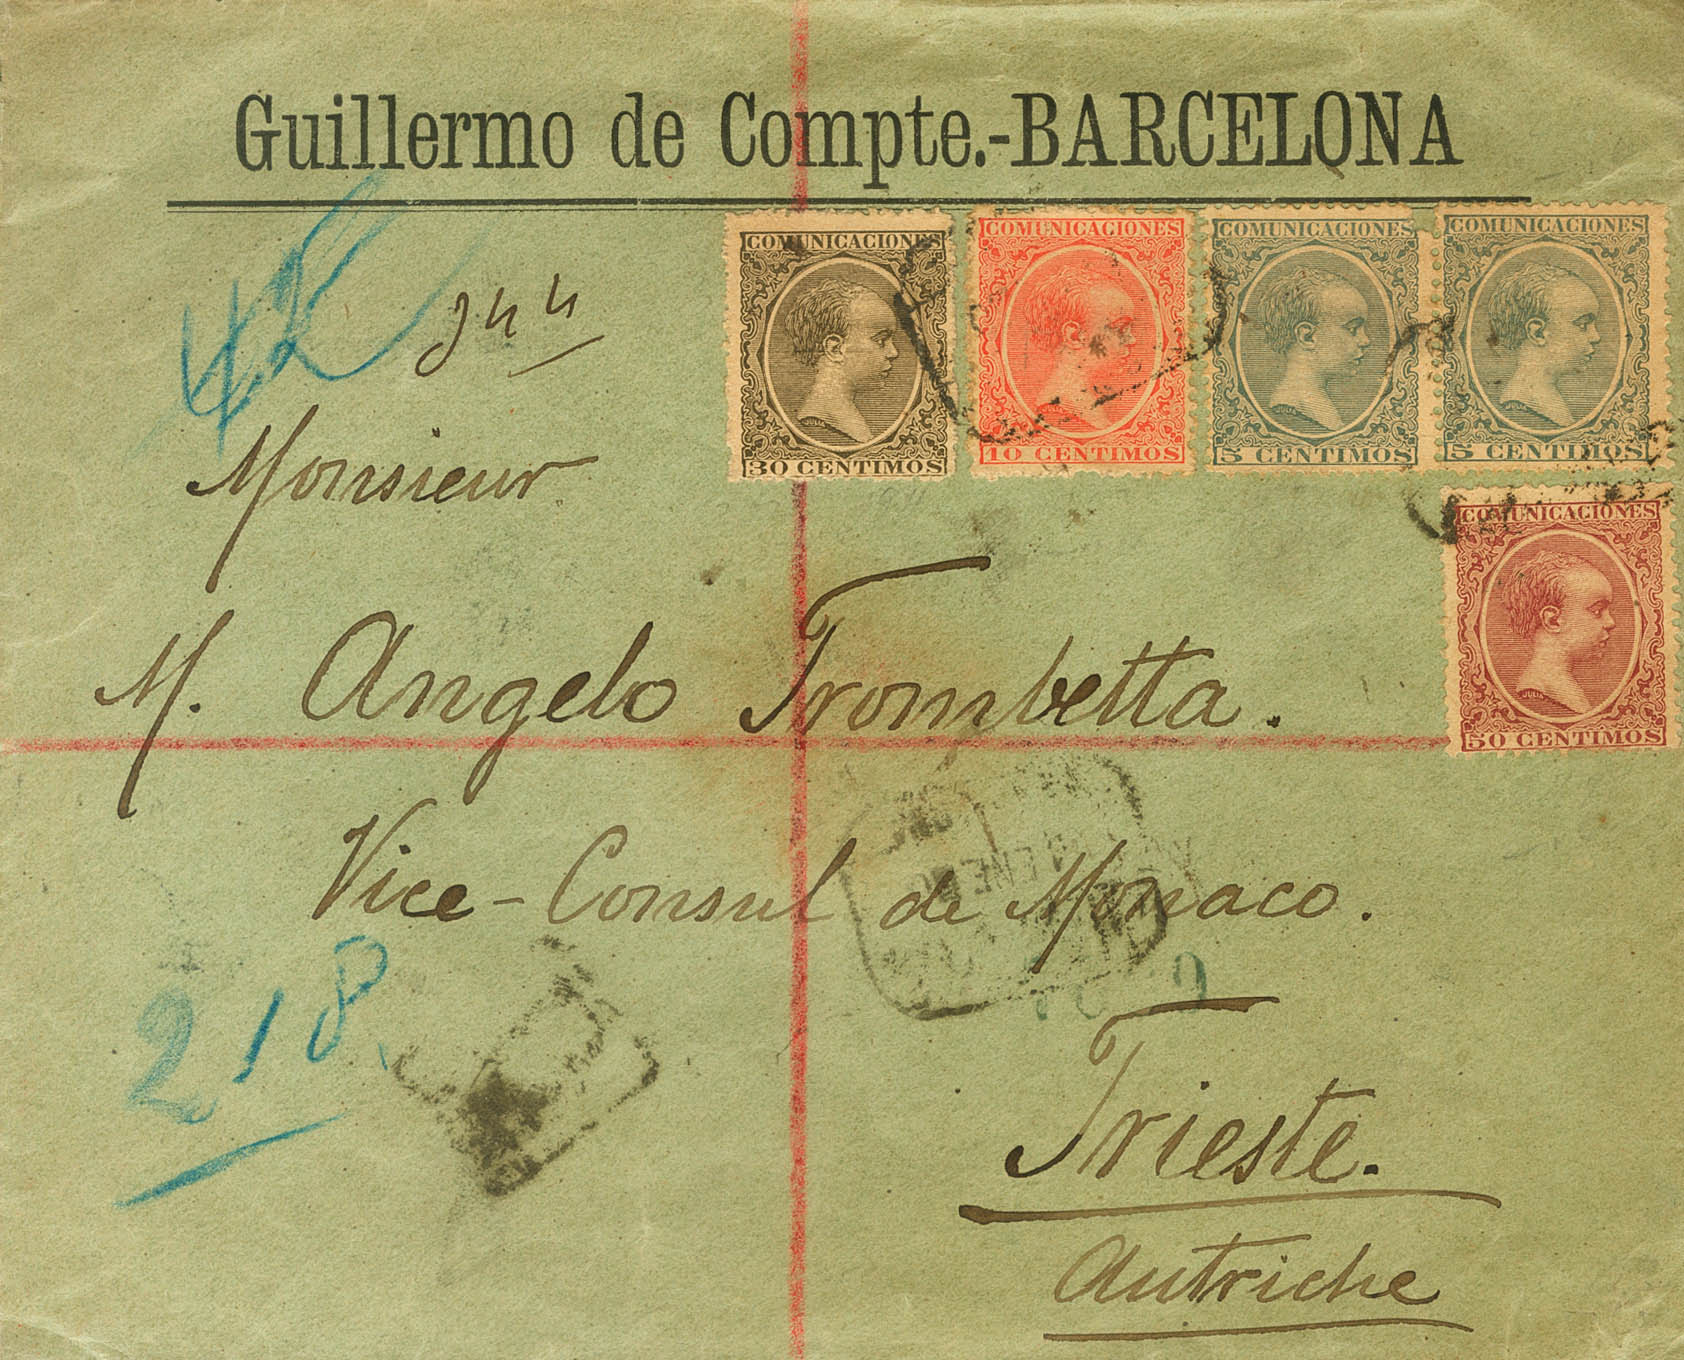 Guillermo de Compte.-BARCELONA
COMUNICACIONES COMUNICACIONES COMUNICACIONES COMUNICACIONES
JULIA JULIA JULIA JULIA
30 CENTIMOS 10 CENTIMOS 5 CENTIMOS 5 CENTIMOS
Monsieur
COMUNICACIONES
JULIA
50 CENTIMOS
M. Angelo Trombetta.
Vice-Consul de Monaco.
218
Trieste.
Autriche